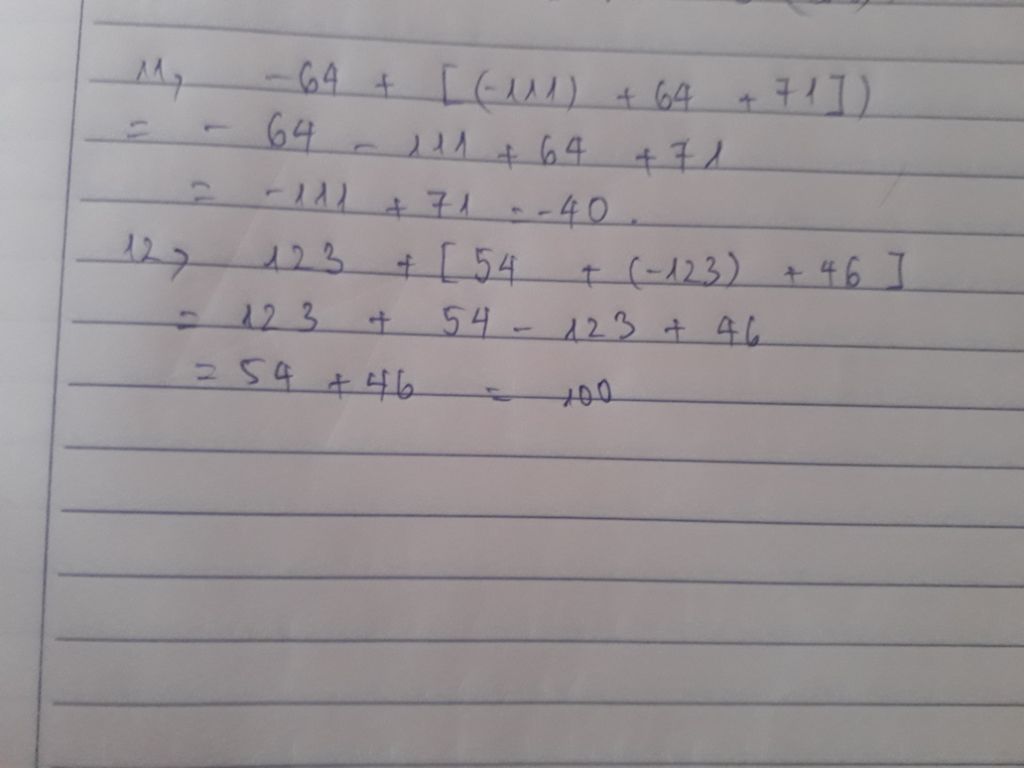 11, -64 + [(-111) + 64 + 71])
= - 64 - 111 + 64 + 71
= -111 + 71 = -40.
12, 123 + [54 + (-123) + 46]
= 123 + 54 - 123 + 46
= 54 + 46 = 100